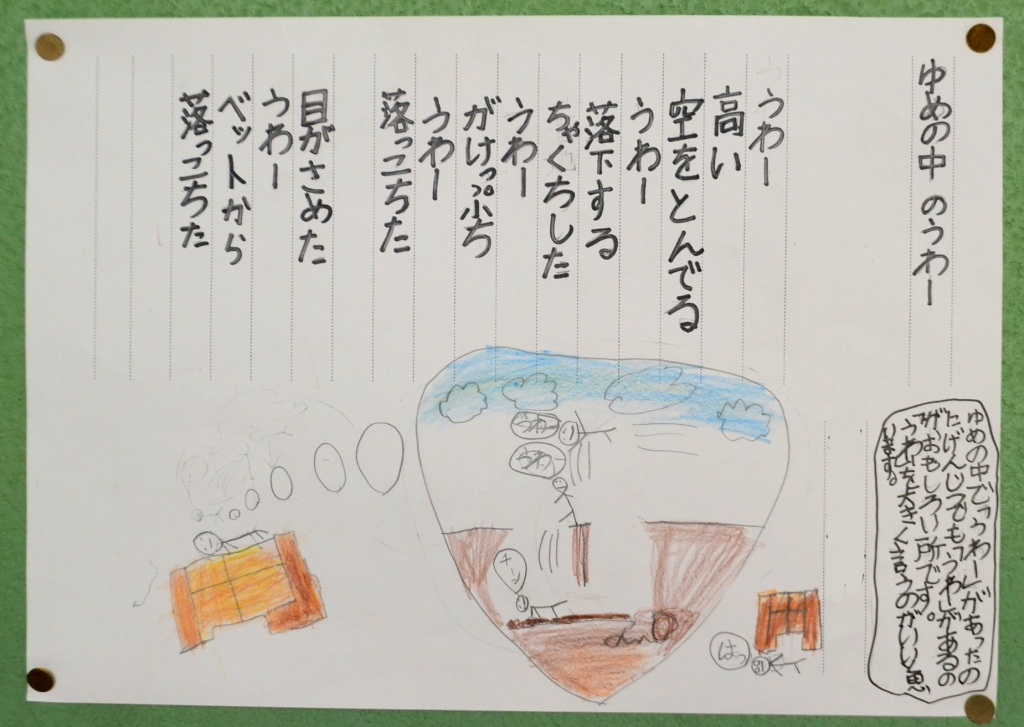 ゆめの中 のうわー
うわー
高い
空をとんでる
うわー
落下する
ちゃくちした
うわー
がけっぷち
うわー
落っこちた
目がさめた
うわー
ベットから
落っこちた
ゆめの中で「うわー」があったの
たげんじつでも「うわ」があるの
がおもしろい所です。
「うわ」を大きく言うのがいい思
います。
うわー
うわ
チーン
はっ